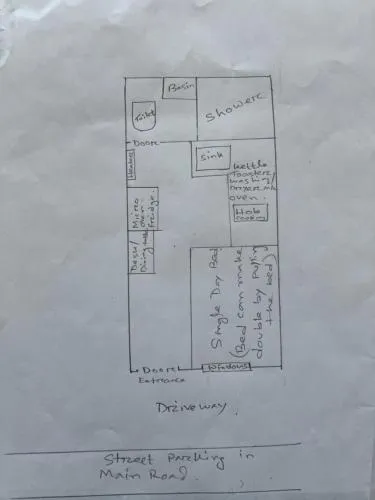 Basin
Toilet
Shower
Doore
Heater
Sink
Kettle
Toaster
washing/
Dryer
oven.
Micro
oven.
Fridge.
Hob
Desk/
Dining table
Single Day Bed
(Bed can make
double by pulling
the bed)
Doore
Entrance
Windows
Driveway.
Street Parking in
Main Road.